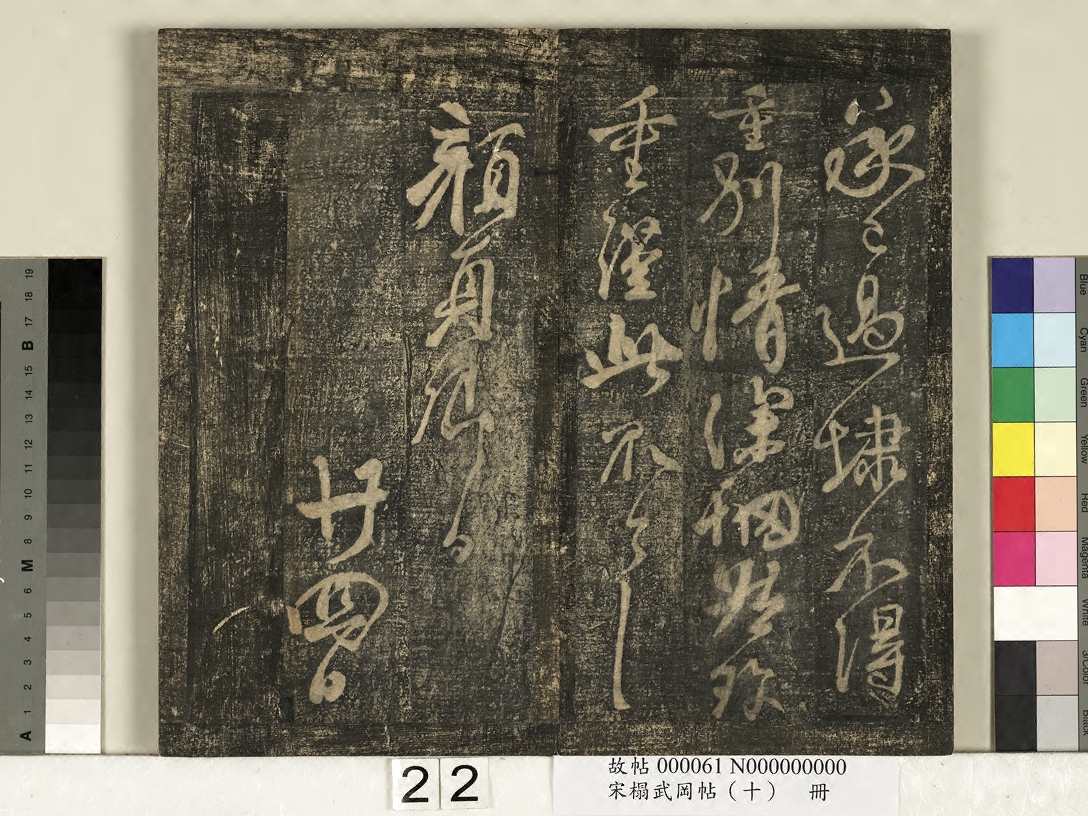 承已過埭不得
重別情深惘然珍
重經此不
顏真卿
廿四日
22
故帖 000061 N000000000
宋榻武岡帖（十） 冊
A 1 2 3 4 5 6 M 8 9 10 11 12 13 14 15 B 17 18 19
Blue
Cyan
Green
Yellow
Red
Magenta
White
3/Color
Black